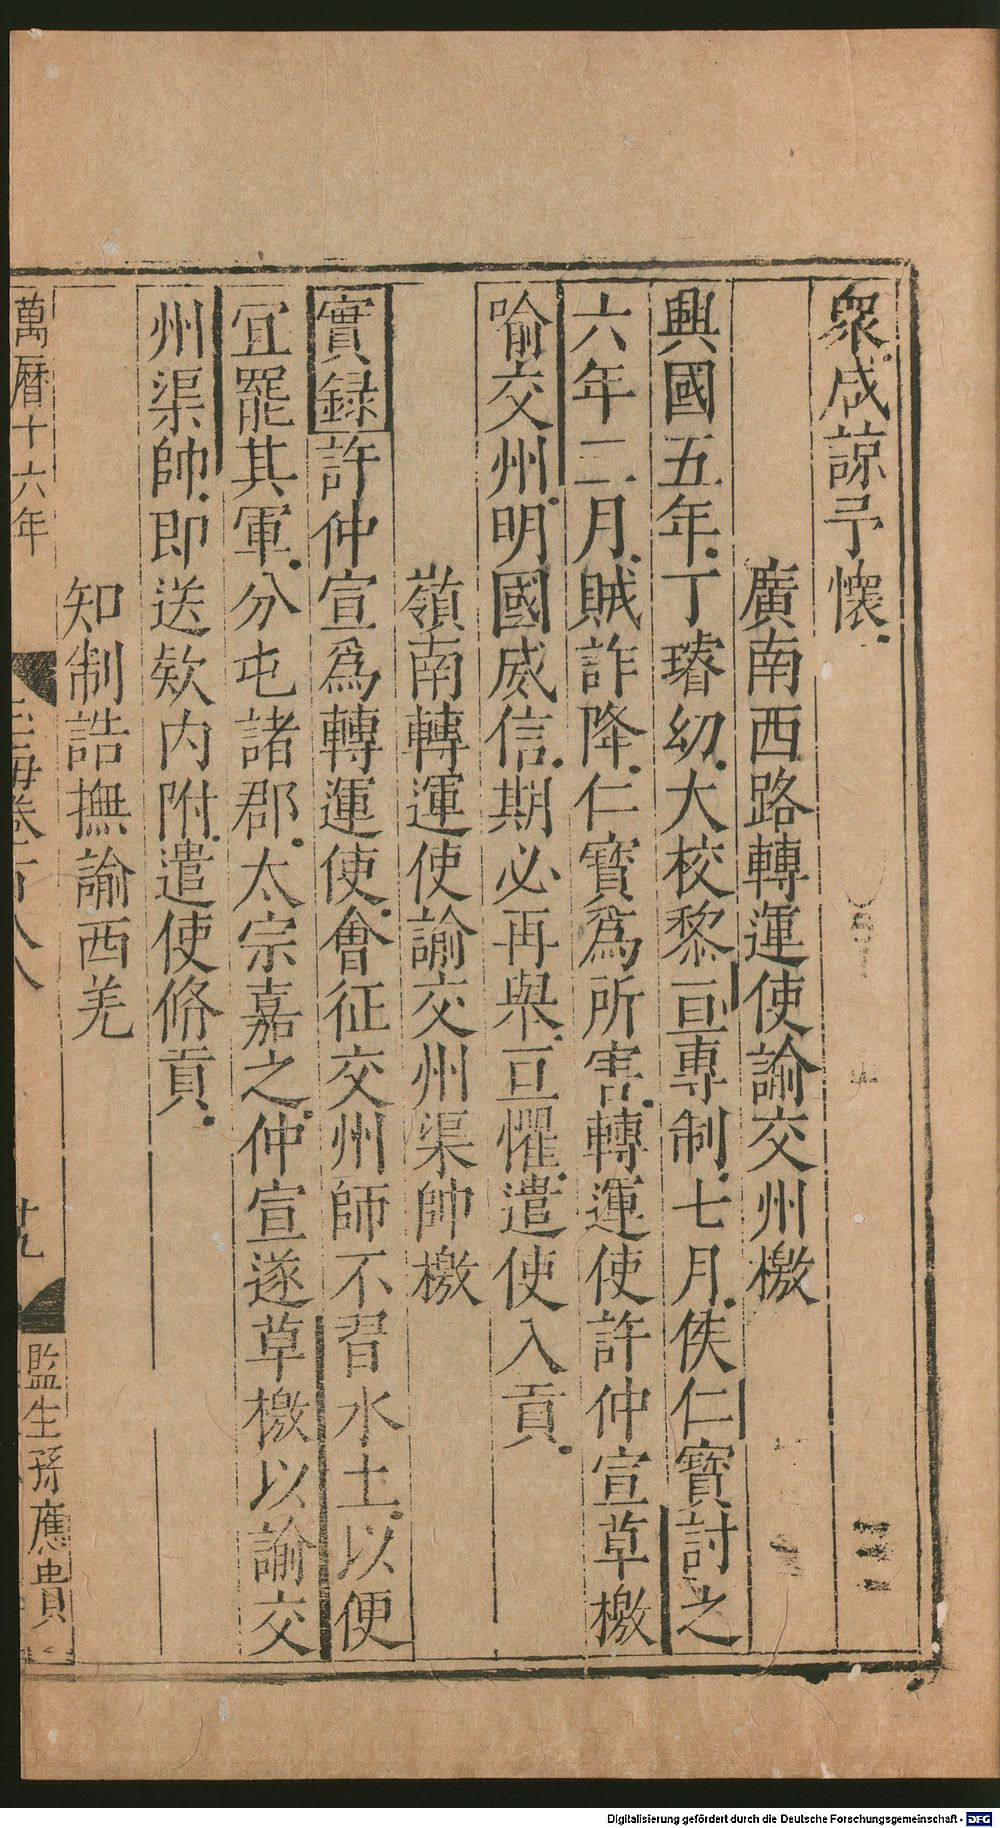 衆咸諒予懷
廣南西路轉運使諭交州檄
興國五年丁璿幼大校黎亘專制七月侯仁寶討之
六年二月賊詐降仁寶爲所害轉運使許仲宣草檄
喻交州明國威信期必再舉亘懼遣使入貢
嶺南轉運使諭交州渠帥檄
實録許仲宣爲轉運使會征交州師不習水土以便
宜罷其軍分屯諸郡太宗嘉之仲宣遂草檄以諭交
州渠帥即送欵内附遣使脩貢
知制誥撫諭西羌
萬曆十六年
玉海卷百八
廿九
監生孫應貴
Digitalisierung gefördert durch die Deutsche Forschungsgemeinschaft - DFG